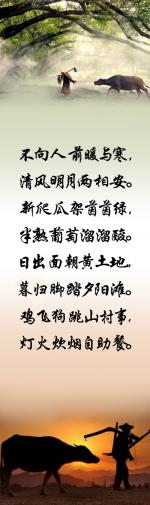 不向人前暖与寒，
清风明月两相安。
新爬瓜架茵茵绿，
半熟葡萄溜溜酸。
日出面朝黄土地，
暮归脚踏夕阳滩。
鸡飞狗跳山村事，
灯火炊烟自助餐。